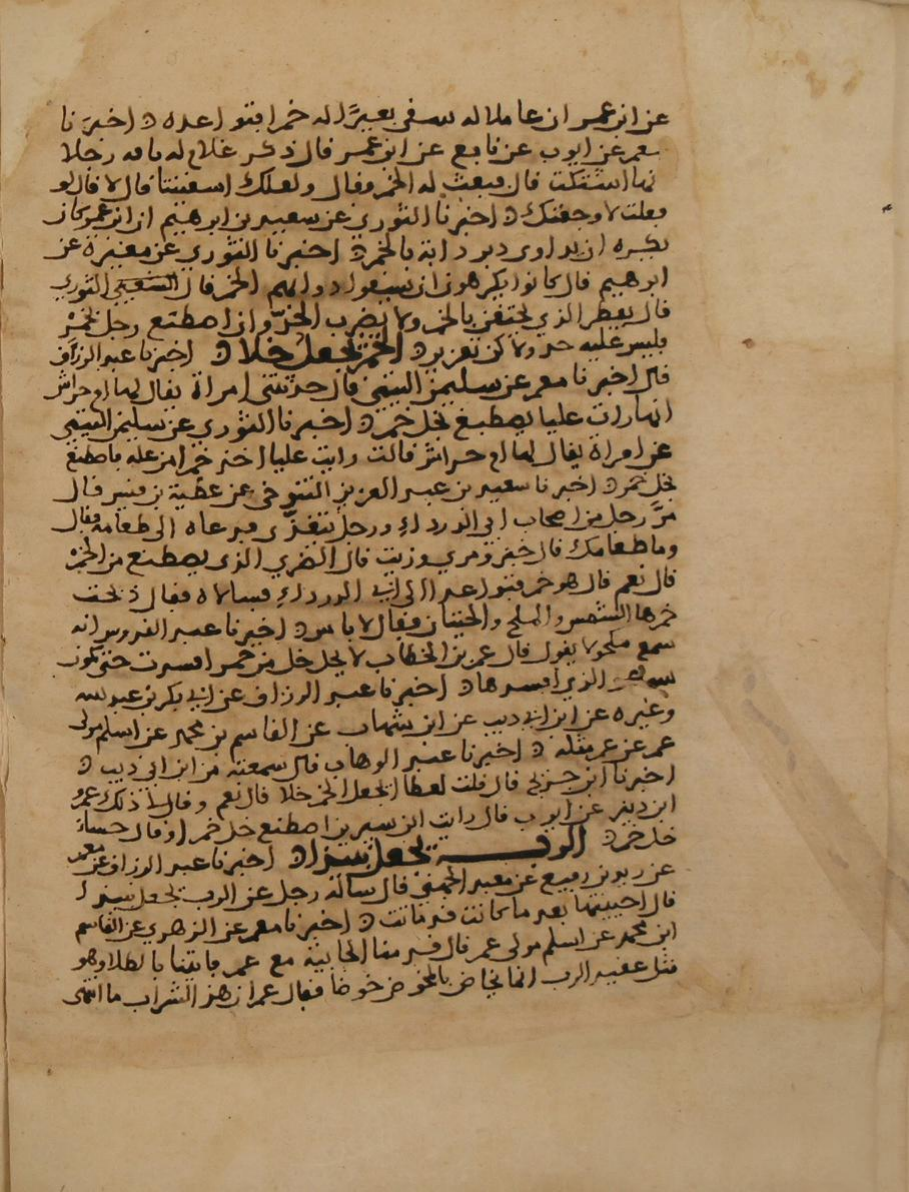 عن ابن عمر ان عاملا له سقى بعيرًا له خمرا فتواعده ه اخبرنا
معمر عن ايوب عن نافع عن ابن عمر قال ذكر غلام له ناقة رجلا
انها اشتكت قال فبعث له الخمر فقال ولعلك اسقيتنا قال لا قال لو
فعلت لاوجعتك ه اخبرنا الثوري عن سعيد بن ابرهيم ان ابن عمر كان
يكره ان يداوى دبر دابة بالخمر ه اخبرنا الثوري عن مغيرة عن
ابرهيم قال كانوا يكرهون ان يسقوا دوابهم الخمر قال الثوري
قال يفطر الذي يحتقن بالخمر ولا يضرب الحدّ وان اصطبغ رجل بخمر
فليس عليه حد ولاكن تعزير ه الخمر يجعل خلا ه اخبرنا عبد الرزاق
قال اخبرنا معمر عن سليمن التيمي قال حدثتني امراة يقال لها ام حراش
انها رات عليا يصطبغ بخل خمر ه اخبرنا الثوري عن سليمن التيمي
عن امراة يقال لها ام حراش قالت رايت عليا اخذ خبزا من سلة فاصطبغ
بخل خمر ه اخبرنا سعيد بن عبد العزيز التنوخي عن عطية بن قيس قال
مرّ رجل من اصحاب ابي الدرداء ورجل يتغدّى فدعاه الى طعامه فقال
وما طعامك قال خبز ومري وزيت قال المري الذي يصطنع من الخمر
قال نعم قال هو خمر فتواعدا الى ابي الدرداء فسالاه فقال ذبحت
خمرها الشمس والملح والحيتان فقال لا باس ه اخبرنا عبد القدوس انه
سمع مكحولا يقول قال عمر بن الخطاب لا يحل خل من خمر افسدت حتى يكون
الله الذي افسدها ه اخبرنا عبد الرزاق عن ابي بكر بن عبد الله
وغيره عن ابن ابي ذيب عن ابن شهاب عن القاسم بن محمد عن اسلم مولى
عمر عن عمر مثله ه اخبرنا عبد الوهاب قال سمعته من ابن ابي ذيب ه
اخبرنا ابن جريج قال قلت لعطا ايجعل الخمر خلا قال نعم وقال لي ذلك عمرو
ابن دينر عن ايوب قال رايت ابن سيرين اصطنع خل خمر او قال حسا
خل خمر ه الرب يجعل نبيذا ه اخبرنا عبد الرزاق عن معمر
عن ربيع عن معبد الجهني قال ساله رجل عن الرب يجعل نبيذا
قال احييتها بعد ما كانت قد ماتت ه اخبرنا معمر عن الزهري عن القاسم
ابن محمد عن اسلم مولى عمر قال قدمنا الجابية مع عمر فاتينا بالطلا وهو
مثل عقيد الرب انما يخاض بالمخوض خوضا فقال عمر ان هذا لشرابا ما انتهى